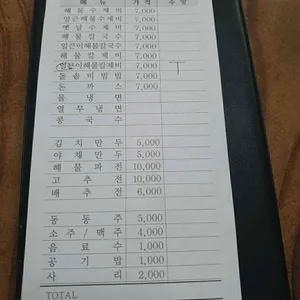 메 뉴 가 격 수 량
해 물 수 제 비 7,000
얼큰해물수제비 7,000
옛 날 수 제 비 7,000
해 물 칼 국 수 7,000
얼큰이해물칼국수 7,000
해 물 칼 제 비 7,000
얼큰이해물칼제비 7,000
돌 솥 비 빔 밥 7,000
돈 까 스 7,000
물 냉 면
열 무 냉 면
콩 국 수
김 치 만 두 5,000
야 채 만 두 5,000
해 물 파 전 10,000
고 추 전 10,000
배 추 전 6,000
동 동 주 5,000
소 주 / 맥 주 4,000
음 료 수 1,000
공 기 밥 1,000
사 리 2,000
TOTAL